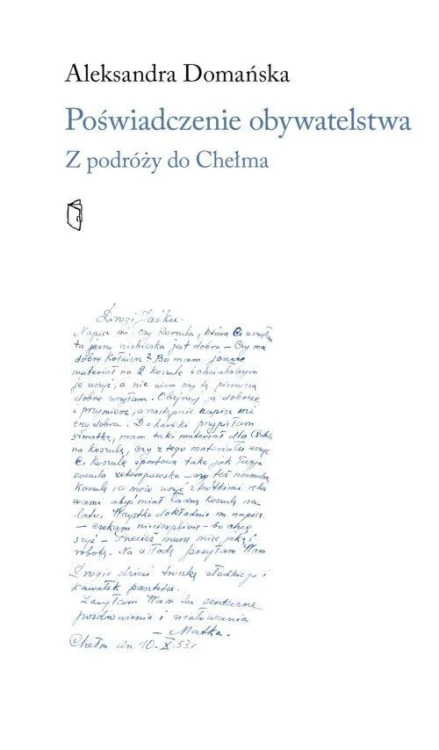 Aleksandra Domańska
Poświadczenie obywatelstwa
Z podróży do Chełma
Drogi Jaśku.
Napisz mi czy koszula, którą Ci uszyłam
ta jasno niebieska jest dobra – Czy ma
dobry kołnierz? Bo mam jeszcze
materiał na 2 koszule i chciałabym
je uszyć, a nie wiem czy tę pierwszą
dobrze uszyłam. Obejrzyj ją dobrze
i przymierz, a następnie napisz mi
czy dobra. Do kórski
mam taki materiał dla Ciebie
na koszulę, czy z tego materiału uszyć
Ci koszulę sportową taką jak Twoja
koszula – czy też normalną
koszulę, a może uszyć z krótkimi ręka
wami abyś miał ładną koszulę na
lato. Wszystko dokładnie mi napisz.
– czekam niecierpliwie – bo chcę
szyć – Przecież muszę mieć jakąś
robotę. Na osłodę posyłam Wam
drodzy dzieci troszkę słodkiego i
kawałek
Zasyłam Wam serdeczne
pozdrowienia i ucałowania
– Matka.
Chełm dn. 10. X. 53 r.